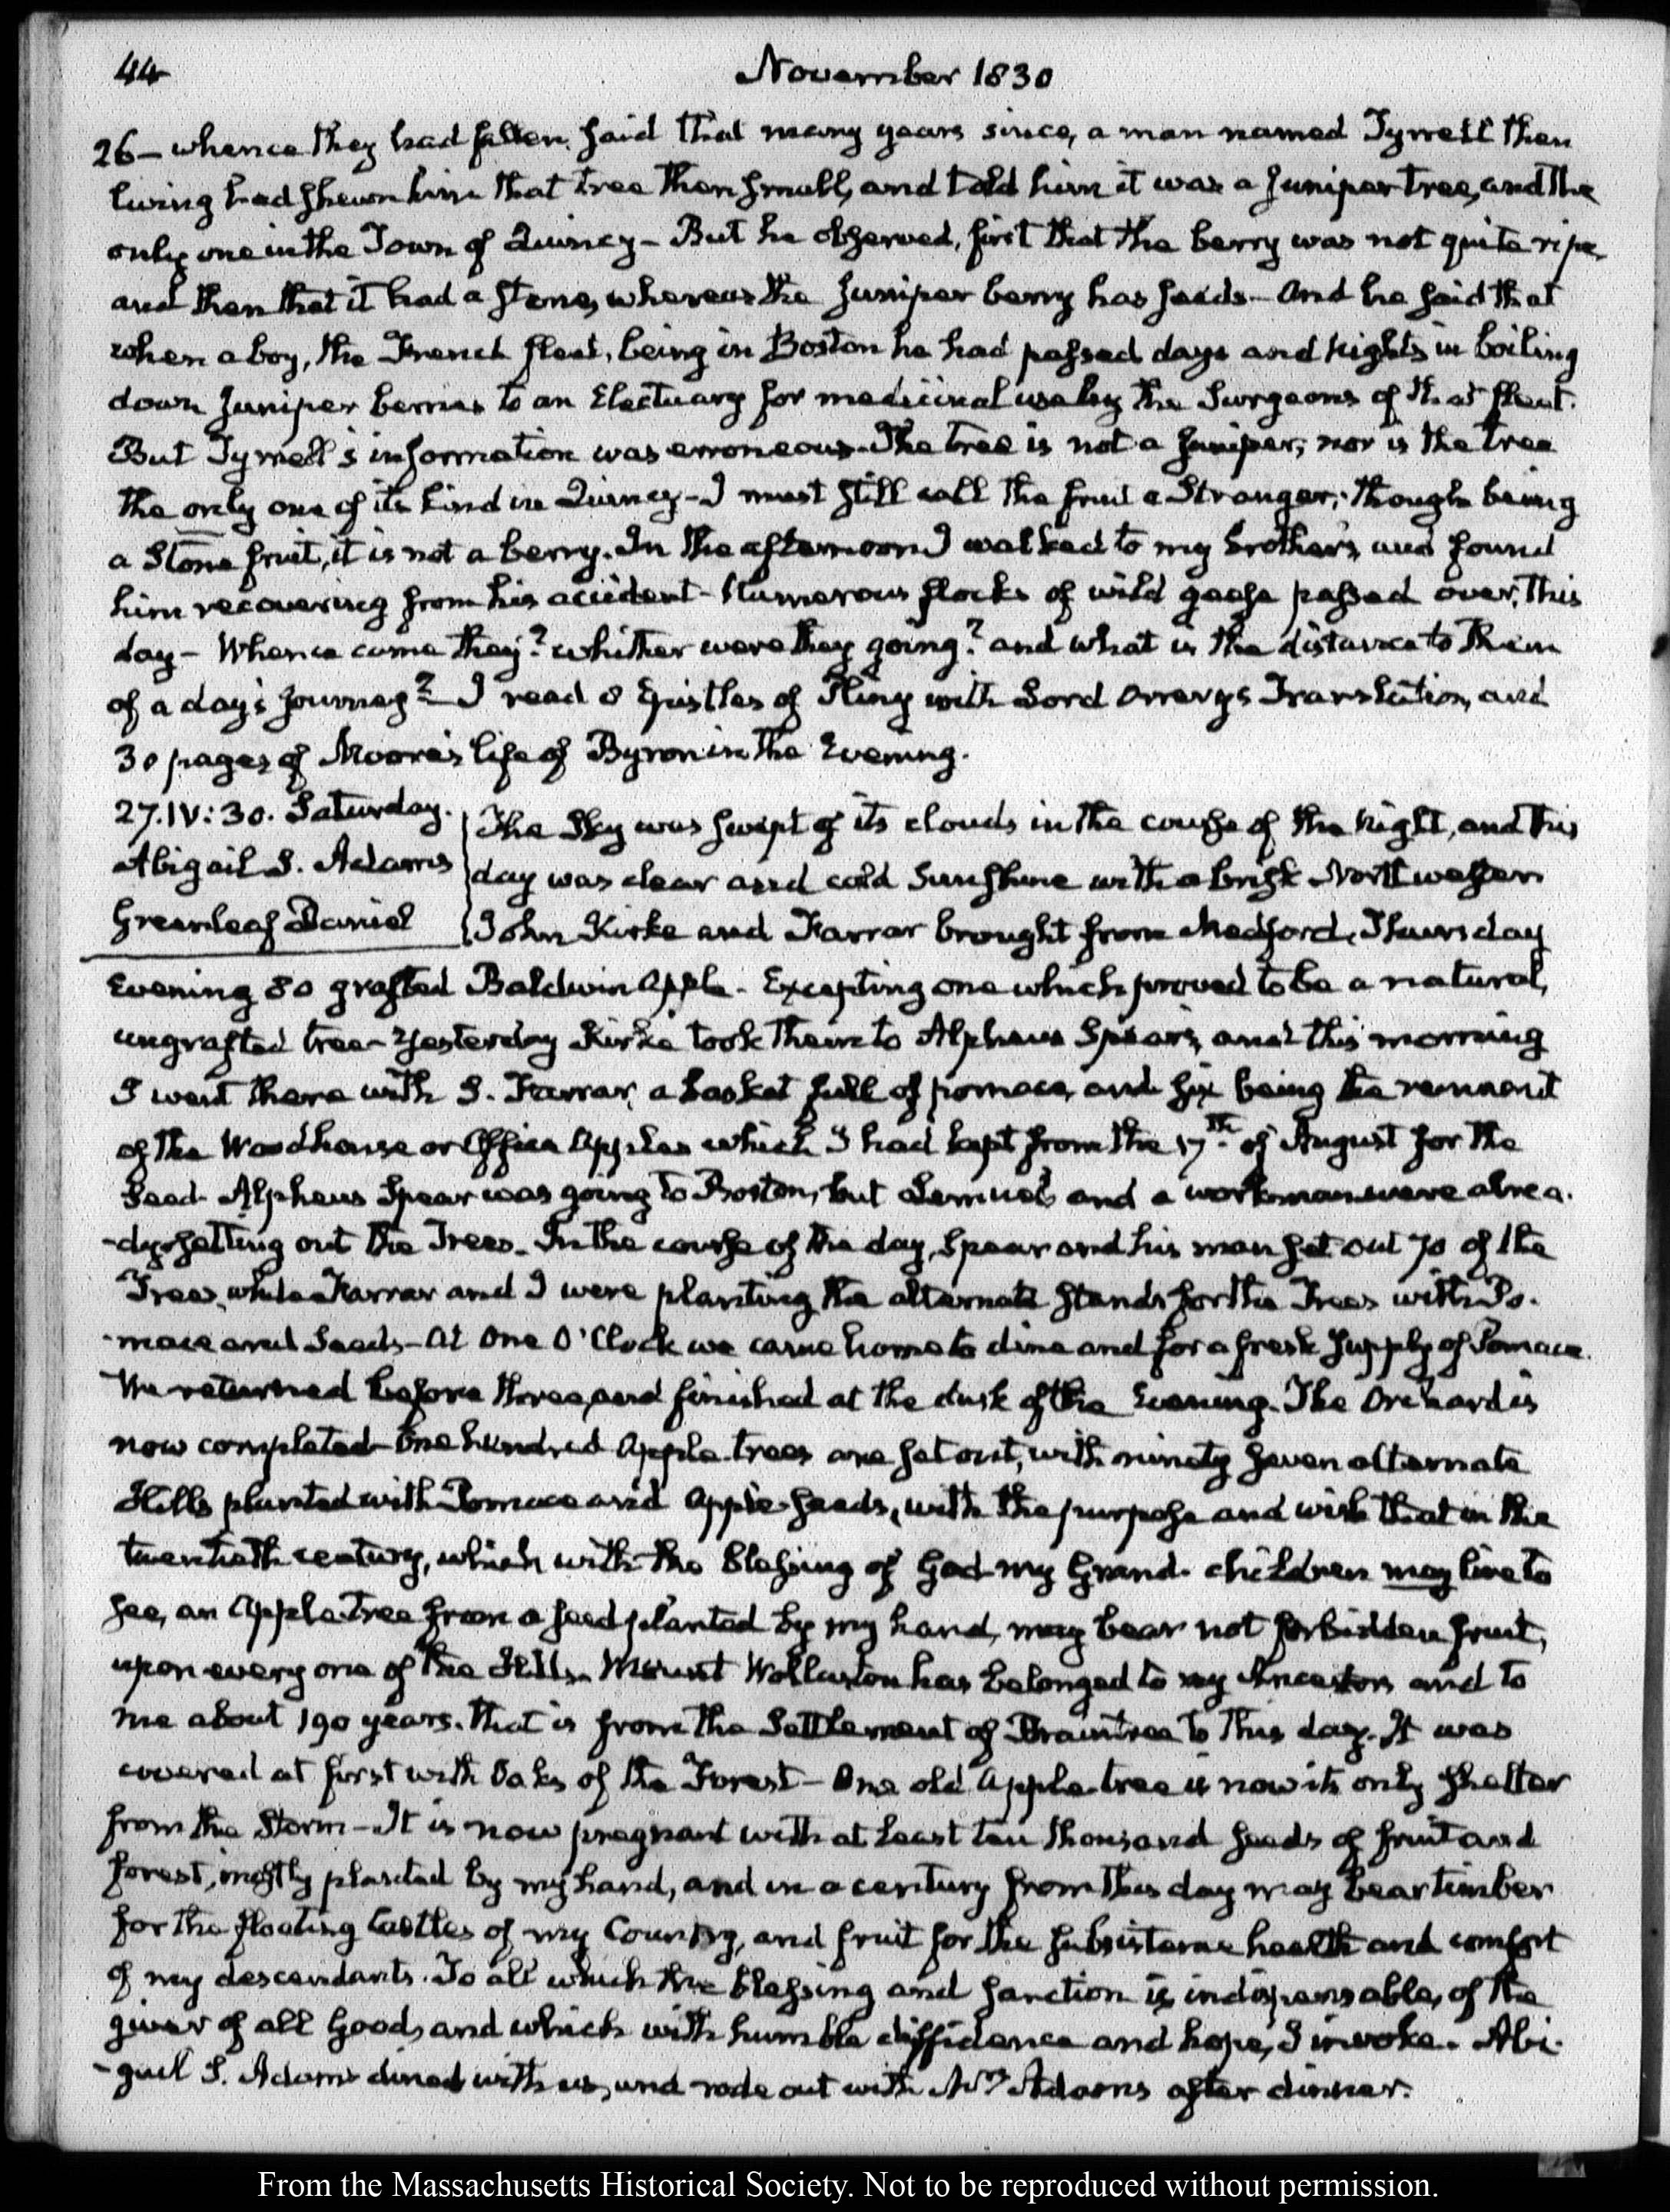 44
November 1830
26 – whence they had fallen, said that many years since, a man named Tyrrell then
living had shewn him that tree then small, and told him it was a Juniper tree, and the
only one in the Town of Quincy – But he observed, first that the berry was not quite ripe,
and then that it had a stone, whereas the Juniper berry has seeds – And he said that
when a boy, the French fleet, being in Boston he had passed days and Nights in boiling
down Juniper berries to an Electuary for medicinal use by the Surgeons of that fleet.
But Tyrrell's information was erroneous. The tree is not a Juniper; nor is the tree
the only one of its kind in Quincy – I must still call the fruit a Stranger; though being
a Stone fruit, it is not a berry. In the afternoon I walked to my brother's, and found
him recovering from his accident – Numerous flocks of wild geese passed over, this
day – Whence came they? whither were they going? and what is the distance to them
of a day's journey? – I read 8 Epistles of Pliny with Lord Orrery's Translation, and
30 pages of Moore's life of Byron in the Evening.
27. IV: 30. Saturday.
Abigail S. Adams
Greenleaf Daniel
The Sky was swept of its clouds in the course of the Night, and this
day was clear and cold Sunshine with a brisk Northwester
John Kirke and Farrar brought from Medford, Thursday
Evening 80 grafted Baldwin Apple – Excepting one which proved to be a natural,
ungrafted tree – Yesterday Kirke took them to Alpheus Spear's, and this morning
I went there with S. Farrar, a basket full of pomace, and six being the remnant
of the Woodhouse or Office Apples which I had kept from the 17th of August for the
Seed. Alpheus Spear was going to Boston, but Lemuel and a workman were alrea-
-dy setting out the Trees – In the course of the day, Spear and his man set out 70 of the
Trees, while Farrar and I were planting the alternate stands for the Trees with Po-
-mace and Seeds – At One O'Clock we came home to dine and for a fresh supply of Pomace.
We returned before three, and finished at the dusk of the Evening. The Orchard is
now completed – One hundred Apple-trees are set out, with ninety seven alternate
Hills planted with Pomace and Apple-seeds, with the purpose and wish that in the
twentieth century, which with the blessing of God my Grand-children may live to
see, an Apple-tree from a seed planted by my hand, may bear not forbidden fruit,
upon every one of the Hills. Mount Wollaston has belonged to my Ancestors and to
me about 190 years. That is from the Settlement of Braintree to this day. It was
covered at first with Oaks of the Forest – One old Apple-tree is now its only shelter
from the Storm – It is now pregnant with at least ten thousand seeds of fruit and
forest, mostly planted by my hand, and in a century from this day may bear timber
for the floating Castles of my Country, and fruit for the subsistence health and comfort
of my descendants. To all which the blessing and sanction is indispensable, of the
giver of all Good, and which with humble diffidence and hope, I invoke. Abi-
-gail S. Adams dined with us, and rode out with Mrs Adams after dinner.
From the Massachusetts Historical Society. Not to be reproduced without permission.